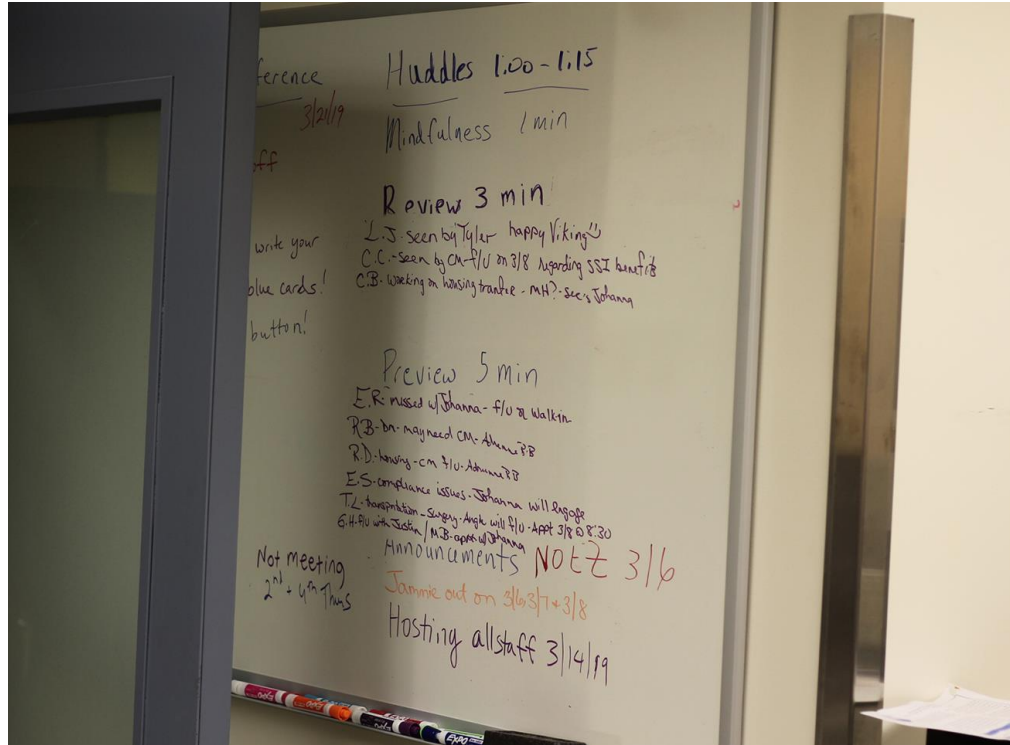 ference
3/21/19
off
write your
blue cards!
button!
Not meeting
2nd + 4th Thurs
Huddles 1:00-1:15
Mindfulness 1 min
Review 3 min
L.J. seen by Tyler happy Viking
C.C.-seen by CM-f/u on 3/8 regarding SSI benefits
C.B. working on housing - MH?-sees Johanna
Preview 5 min
E.R. missed w/Johanna- f/u or walk-in
R.B- may need CM-
R.D.-housing-CM f/u-
E.S-compliance issues-Johanna will engage
T.L-transportation-Surgery-Angie will f/u-Appt 3/8 @ 8:30
G.H-f/u with Justin/M.B-appt w/Johanna
Announcements 3/6
Jammie out on 3/6, 3/7 + 3/8
Hosting allstaff 3/14/19
EXPO